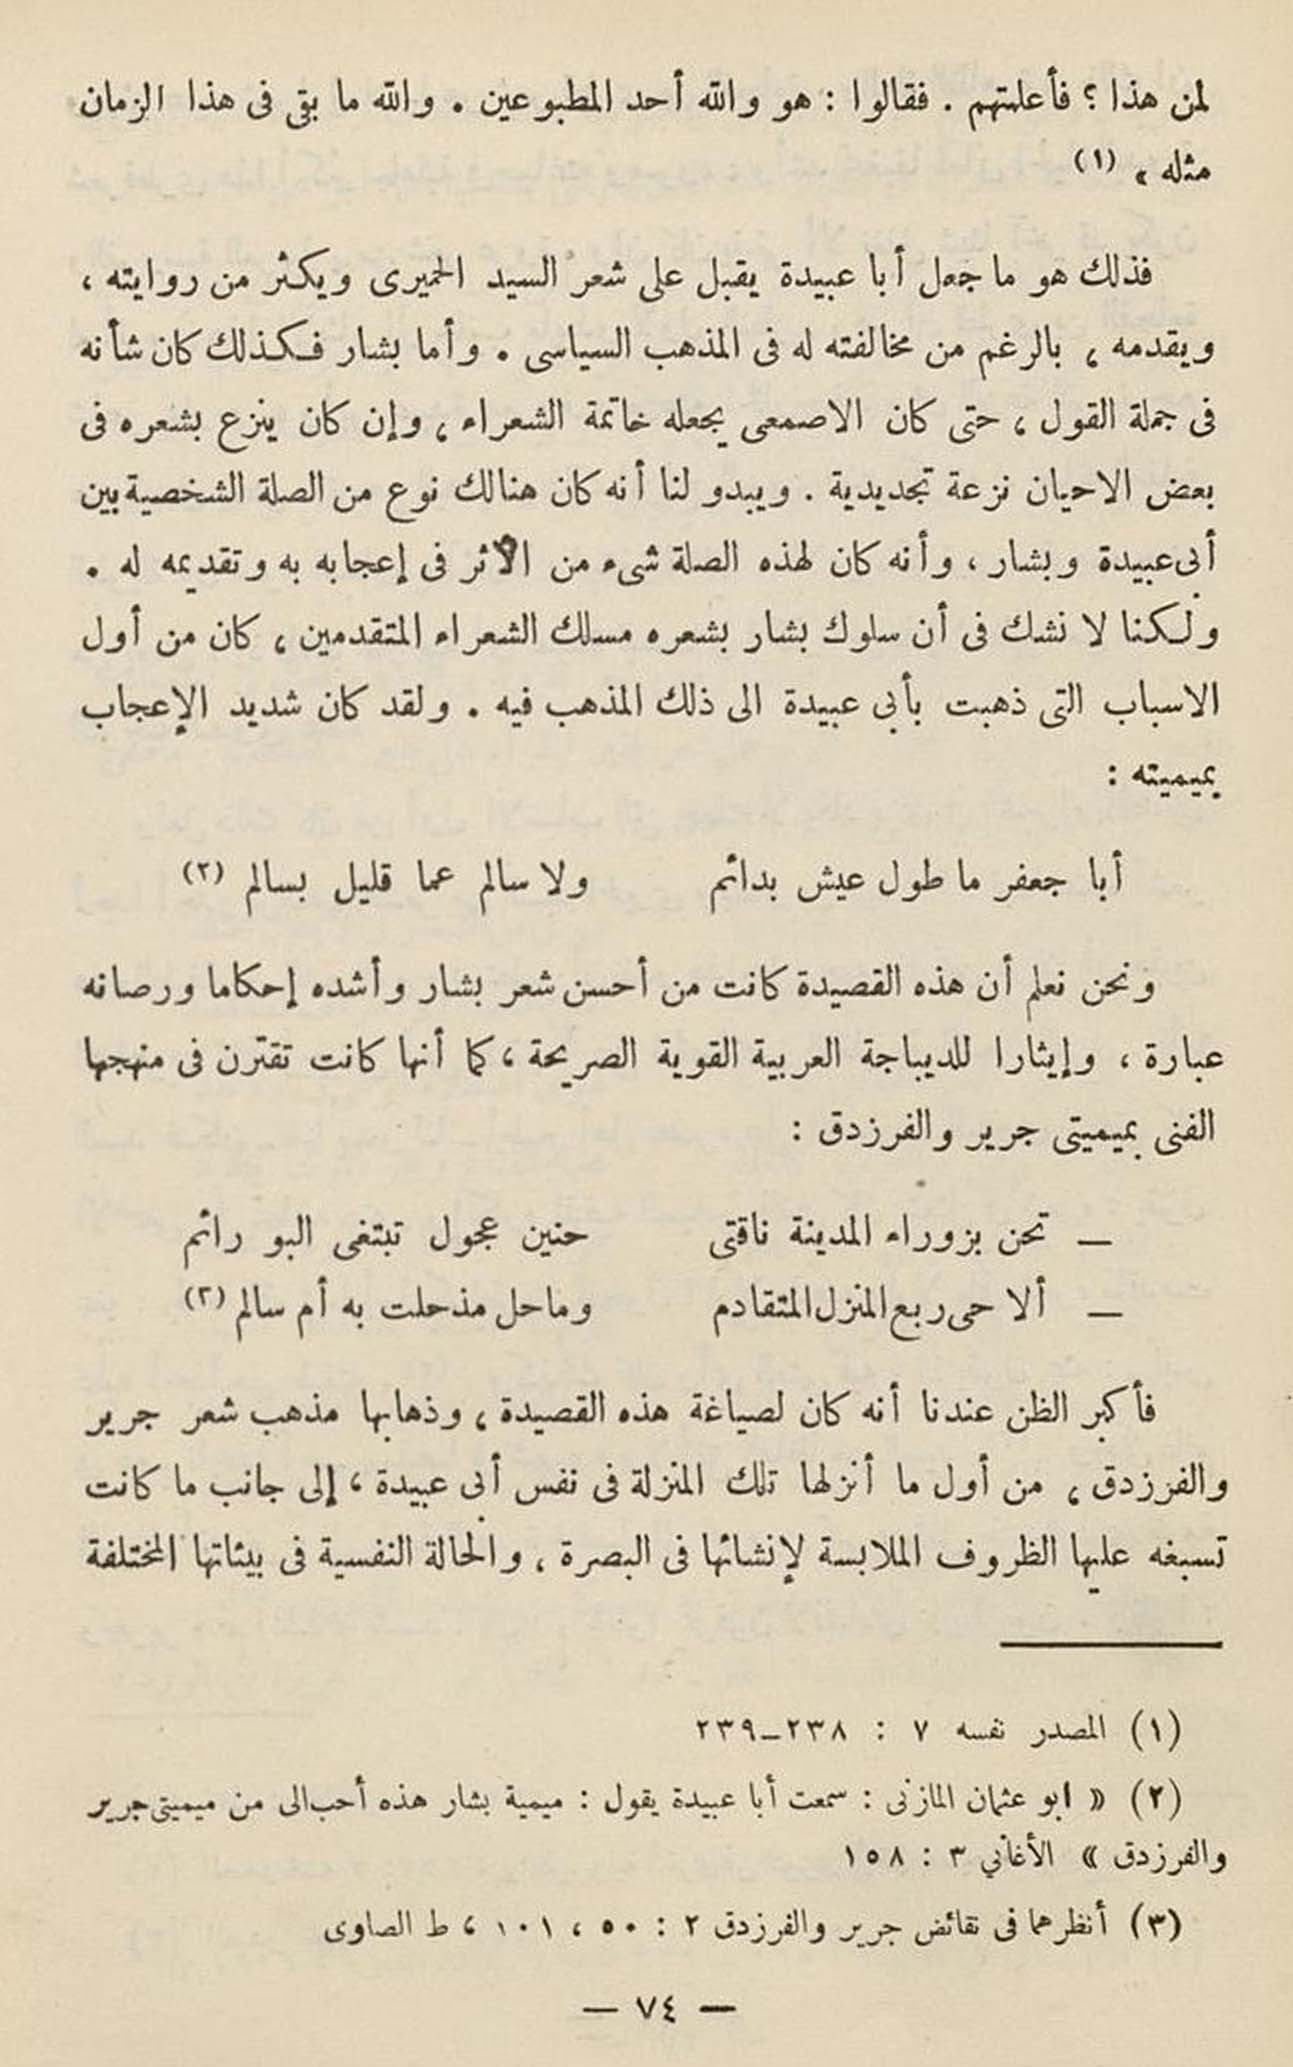 لمن هذا ؟ فأعلمتهم . فقالوا : هو والله أحد المطبوعين . والله ما بقى فى هذا الزمان
مثله » (١)
فذلك هو ما جعل أبا عبيدة يقبل على شعر السيد الحميرى ويكثر من روايته ،
ويقدمه ، بالرغم من مخالفته له فى المذهب السياسى . وأما بشار فكذلك كان شأنه
فى جملة القول ، حتى كان الاصمعى يجعله خاتمة الشعراء ، وإن كان ينزع بشعره فى
بعض الاحيان نزعة تجديدية . ويبدو لنا أنه كان هنالك نوع من الصلة الشخصية بين
أبى عبيدة وبشار ، وأنه كان لهذه الصلة شىء من الأثر فى إعجابه به وتقديمه له .
ولكنا لا نشك فى أن سلوك بشار بشعره مسلك الشعراء المتقدمين ، كان من أول
الاسباب التى ذهبت بأبى عبيدة الى ذلك المذهب فيه . ولقد كان شديد الإعجاب
بميميته :
أبا جعفر ما طول عيش بدائم ولا سالم عما قليل بسالم (٢)
ونحن نعلم أن هذه القصيدة كانت من أحسن شعر بشار وأشده إحكاما ورصانه
عبارة ، وإيثارا للديباجة العربية القوية الصريحة ، كما أنها كانت تقترن فى منهجها
الفنى بميميتى جرير والفرزدق :
— تحن بزوراء المدينة ناقتى حنين عجول تبتغى البو رائم
— ألا حى ربع المنزل المتقادم وما حل مذ حلت به أم سالم (٣)
فأكبر الظن عندنا أنه كان لصياغة هذه القصيدة ، وذهابها مذهب شعر جرير
والفرزدق ، من أول ما أنزلها تلك المنزلة فى نفس أبى عبيدة ، إلى جانب ما كانت
تسبغه عليها الظروف الملابسة لإنشائها فى البصرة ، والحالة النفسية فى بيئاتها المختلفة
(١) المصدر نفسه ٧ : ٢٣٨–٢٣٩
(٢) « ابو عثمان المازنى : سمعت أبا عبيدة يقول : ميمية بشار هذه أحب الى من ميميتى جرير
والفرزدق » الأغاني ٣ : ١٥٨
(٣) أنظرهما فى نقائض جرير والفرزدق ٢ : ٥٠ ، ١٠١ ، ط الصاوى
— ٧٤ —